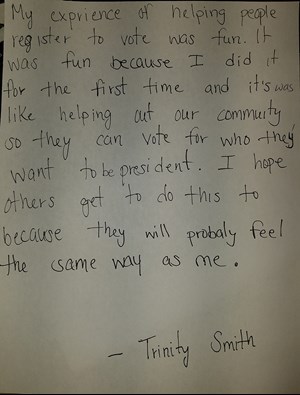 My exprience of helping people
register to vote was fun. It
was fun because I did it
for the first time and it's was
like helping out our commuity
so they can vote for who they
want to be president. I hope
others get to do this to
because they will probaly feel
the same way as me.
- Trinity Smith